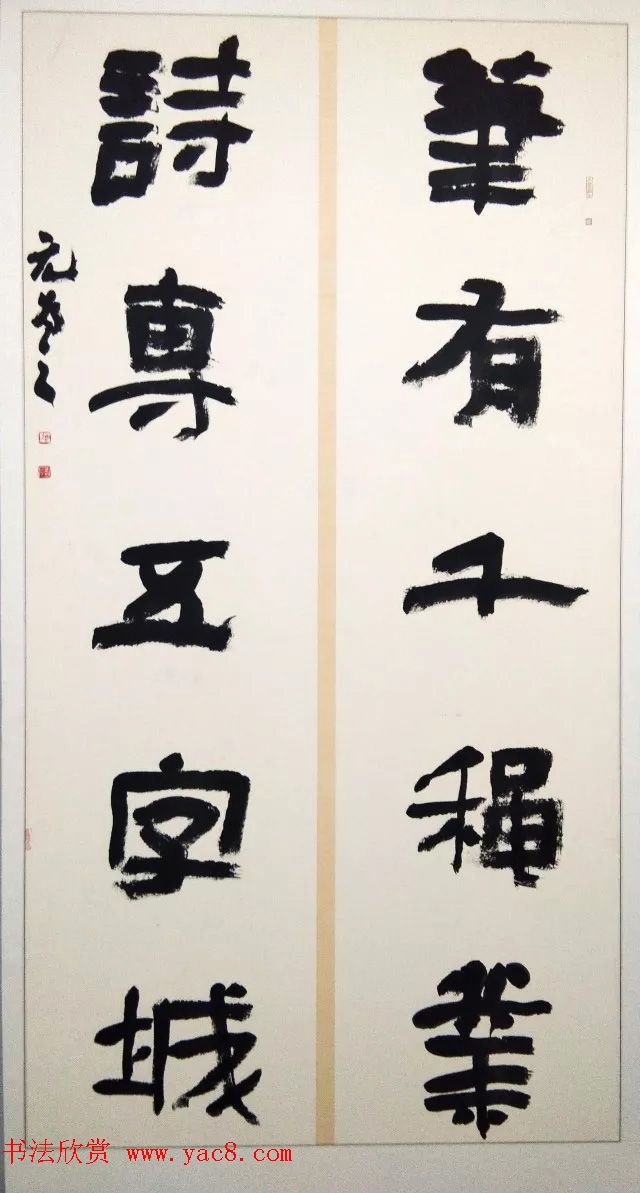 筆有千穐業
詩專五字城
书法欣赏 www.yac8.com